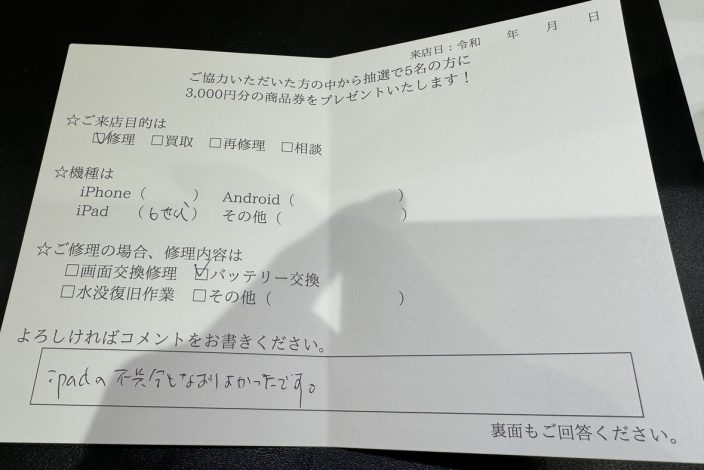 来店日：令和　　年　　月　　日
ご協力いただいた方の中から抽選で5名の方に
3,000円分の商品券をプレゼントいたします！
☆ご来店目的は
☑修理　□買取　□再修理　□相談
☆機種は
iPhone（　　　）　Android（　　　　　　　）
iPad　（6せだい）　その他（　　　　　　　）
☆ご修理の場合、修理内容は
□画面交換修理　☑バッテリー交換
□水没復旧作業　□その他（　　　　　　　）
よろしければコメントをお書きください。
ipadの不具合もなおりよかったです。
裏面もご回答ください。